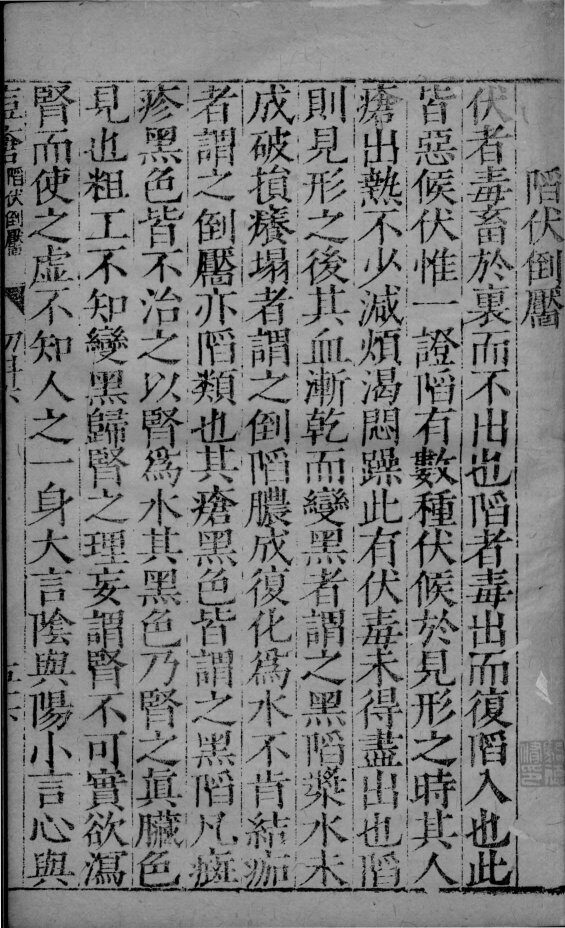 陷伏倒靨
伏者毒畜於裏而不出也陷者毒出而復陷入也此
皆惡候伏惟一證陷有數種伏候於見形之時其人
瘡出熱不少減煩渴悶躁此有伏毒未得盡出也陷
則見形之後其血漸乾而變黑者謂之黑陷漿水未
成破損癢塌者謂之倒陷膿成復化為水不肯結痂
者謂之倒靨亦陷類也其瘡黑色皆謂之黑陷凡痘
疹黑色皆不治之以腎爲水其黑色乃腎之眞臟色
見也粗工不知變黑歸腎之理妄謂腎不可實欲瀉
腎而使之虛不知人之一身大言陰與陽小言心與
陷伏倒靨